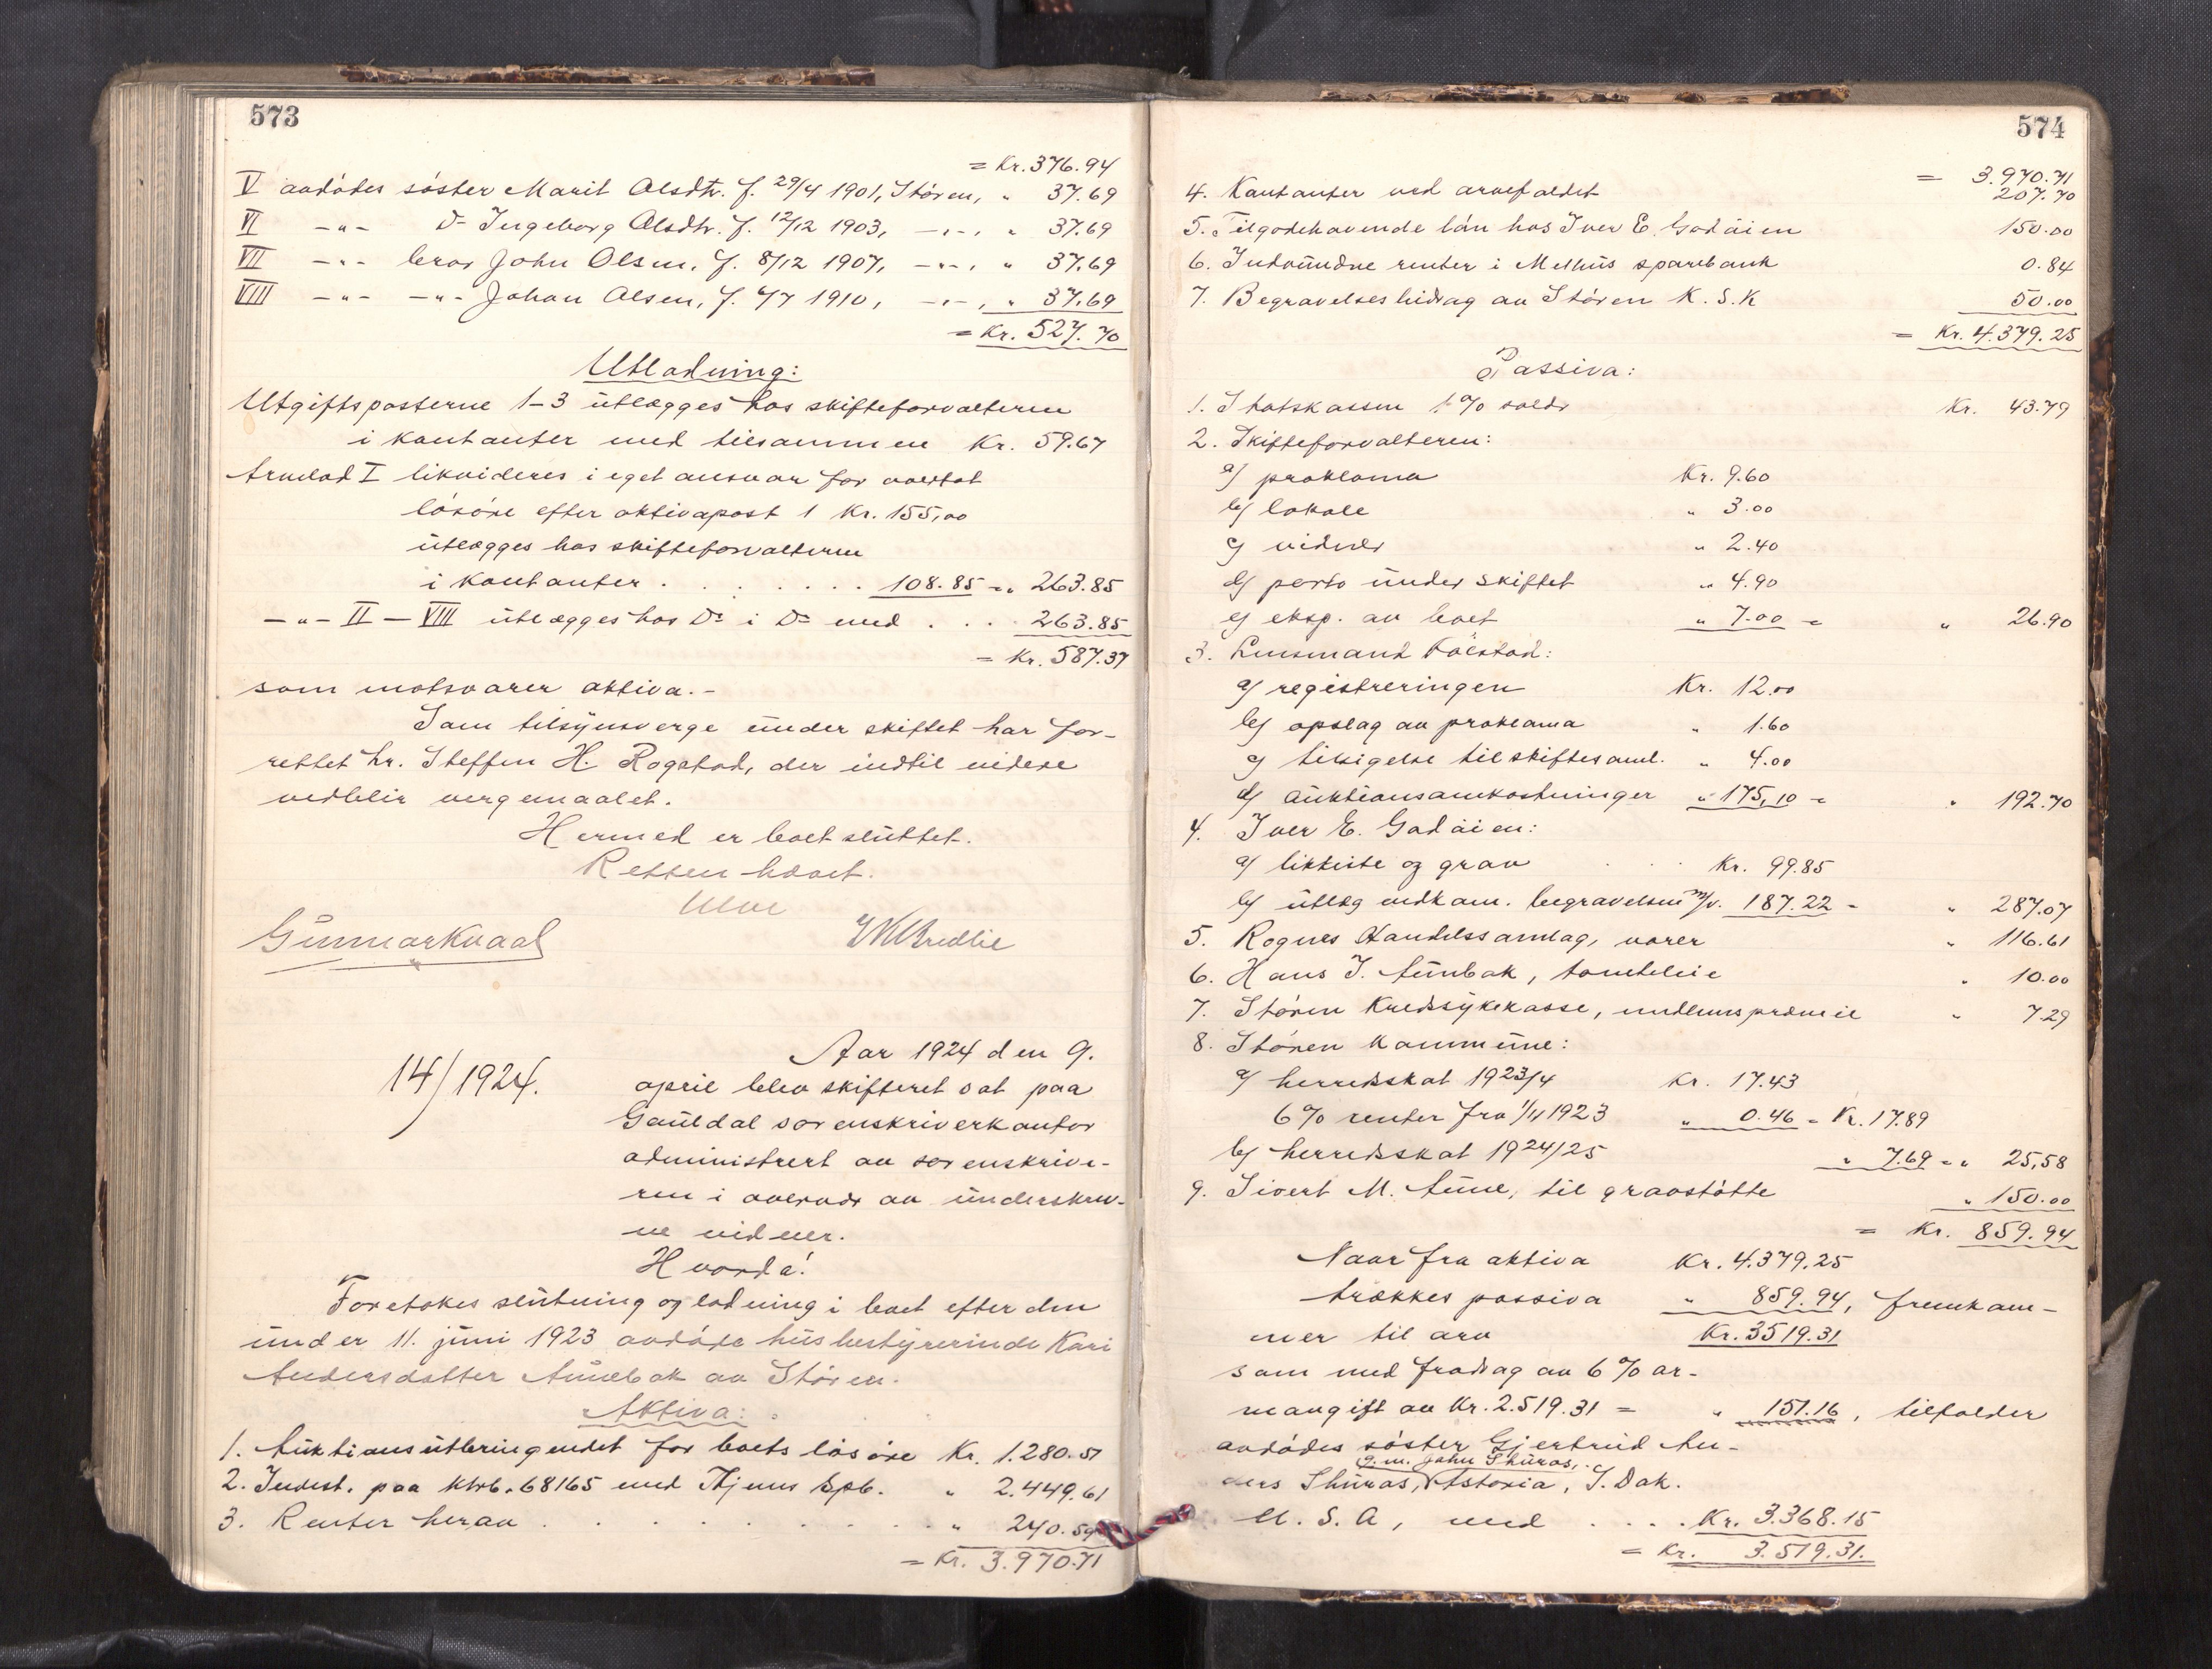 573
= Kr. 376.94
V avdödes söster Marit Olsdtr. f. 29/4 1901, Stören, " 37.69
VI -"- Do Ingeborg Olsdtr. f. 12/12 1903, -"-, " 37.69
VII -"- bror John Olsen, f. 8/12 1907, -"-, " 37.69
VIII -"- -"- Johan Olsen, f. 4/7 1910, -"-, " 37.69
= Kr. 527.70
Utlodning:
Utgiftsposterne 1-3 utlægges hos skifteforvalteren
i kontanter med tilsammen Kr. 59.67
Arvelod I likvideres i eget ansvar for overtat
lösöre efter aktivapost 1 Kr. 155,00
utlægges hos skifteforvalteren
i kontanter . . . . . . 108.85 = " 263.85
-"- II - VIII utlægges hos Do i Do med . . . 263.85
= Kr. 587.37
som motsvarer aktiva.-
Som tilsynsverge under skiftet har for-
rettet hr. Steffen H. Rogstad, der indtil videre
vedblir vergemaalet.
Hermed er boet sluttet.
Retten hævet.
Gunnar Kvaal
14/1924.
Aar 1924 den 9.
april blev skifteret sat paa
Gauldal sorenskriverkontor
administrert av sorenskrive-
ren i overvær av underskrev-
ne vidner.
Hvorda!
Foretokes slutning og lodning i boet efter den
under 11. juni 1923 avdöde husbestyrerinde Kari
Andersdatter Aunebak av Stören.
Aktiva:
1. Auktionsutbringendet for boets lösöre Kr. 1.280.51
2. Indest. paa ktrb. 68165 med Thjems Spb. " 2.449.61
3. Renter herav . . . . . . . . " 240.59
= Kr. 3.970.71
574
= 3.970.71
4. Kontanter ved arvefaldet 207.70
5. Tilgodehavende lån hos Iver E. Godåien 150.00
6. Indvundne renter i Melhus sparebank 0.84
7. Begravelsesbidrag av Stören K.S.K 50.00
= Kr. 4.379.25
Passiva:
1. Statskassen 1% avgift Kr. 43.79
2. Skifteforvalteren:
a) proklama Kr. 9.60
b) lokale " 3.00
c) vidner " 2.40
d) porto under skiftet " 4.90
e) eksp. av boet " 7.00 = " 26.90
3. Lensmand Folstad:
a) registreringen Kr. 12.00
b) opslag av proklama " 1.60
c) tilsigelse til skiftesaml. " 4.00
d) auktionsomkostninger " 175,10 = " 192.70
4. Iver E. Godåien:
a) likkiste og grav . . Kr. 99.85
b) utlæg vedkom. begravelsen m/v. 187.22 = " 287.07
5. Rognes Handelssamlag, varer " 116.61
6. Hans J. Aunbak, tomteleie " 10.00
7. Stören Kredssykekasse, medlemspræmie " 7.29
8. Stören Kommune:
a) herredsskat 1923/4 Kr. 17.43
6% renter fra 1/11 1923 " 0.46 = Kr. 17.89
b) herredsskat 1924/25 " 7.69 = " 25,58
9. Sivert M. Aune, til gravstötte " 150.00
= Kr. 859.94
Naar fra aktiva Kr. 4.379.25
trækkes passiva " 859.94, fremkom-
mer til arv Kr. 3519.31
som med fradrag av 6% ar-
veavgift av Kr. 2.519.31 = " 151.16, tilfalder
avdödes söster Gjertrud An-
g.m. John Sburas,
ders Sburas, Astoria, S. Dak.
U.S.A, med . . . . Kr. 3.368.15
= Kr. 3.519.31.